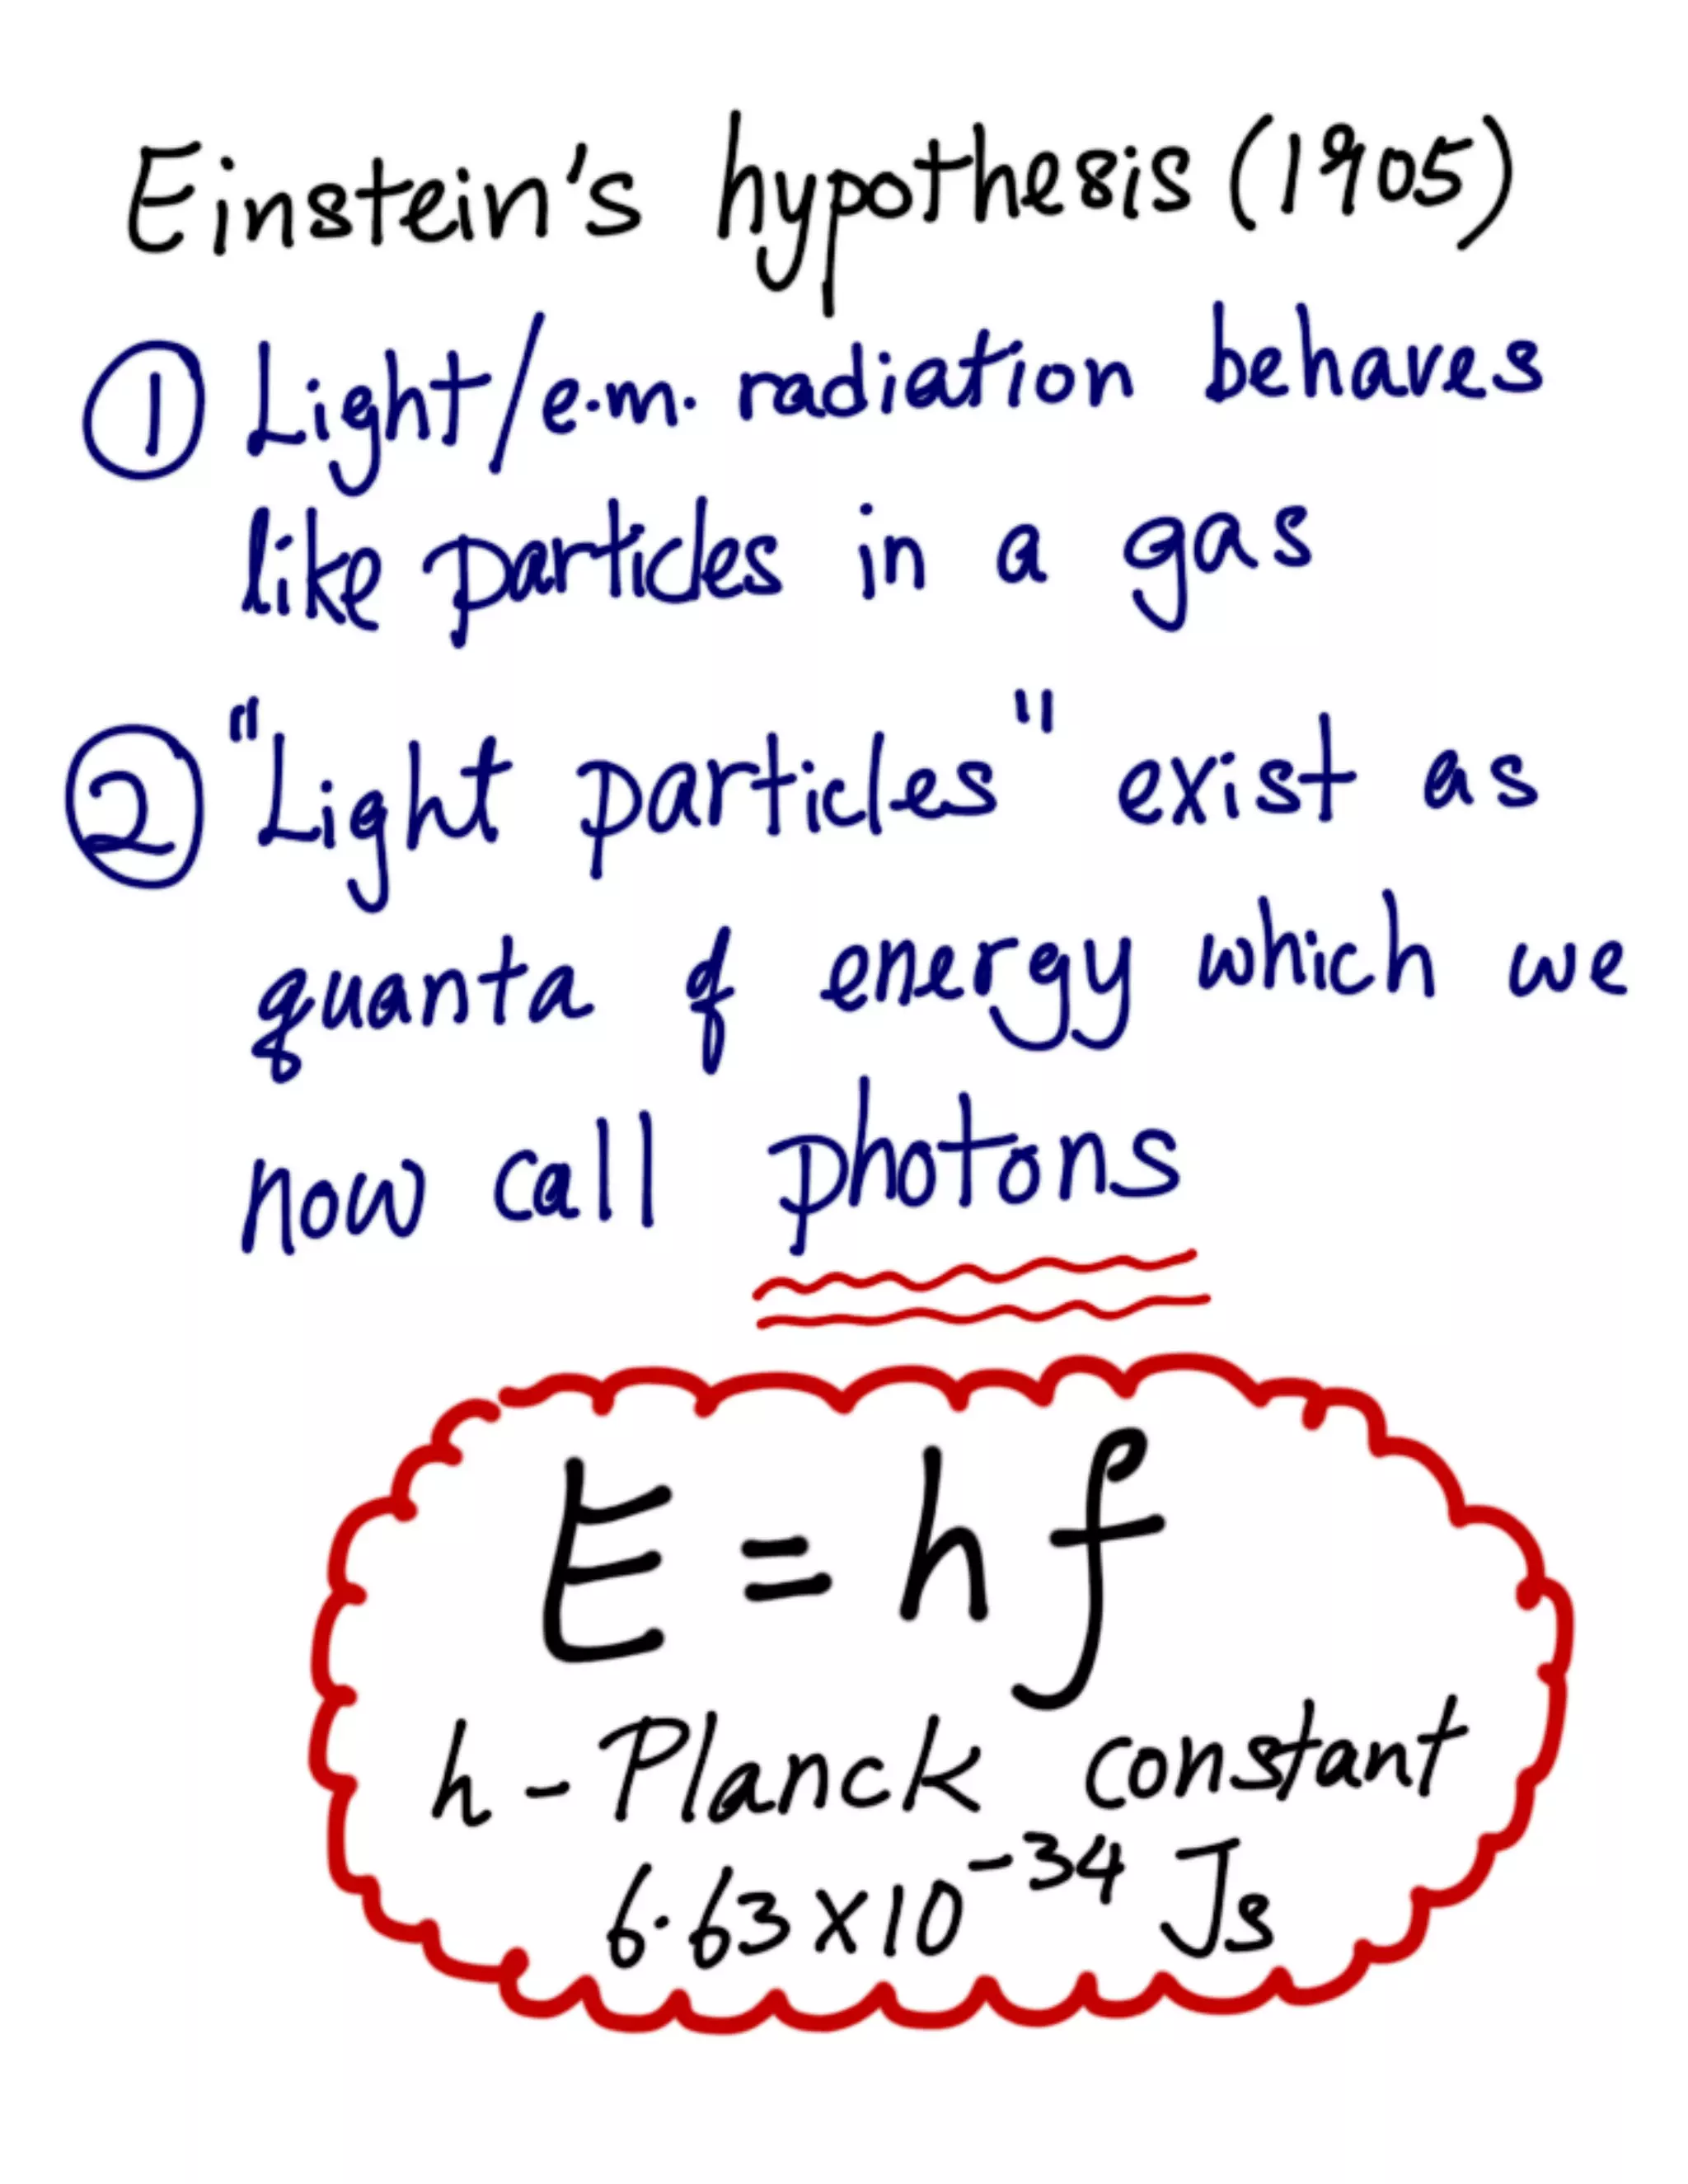 Einstein's hypothesis (1905)
① Light/e.m. radiation behaves
like particles in a gas
② "Light particles" exist as
quanta of energy which we
now call photons
E = hf
h - Planck constant
6.63 x 10⁻³⁴ Js